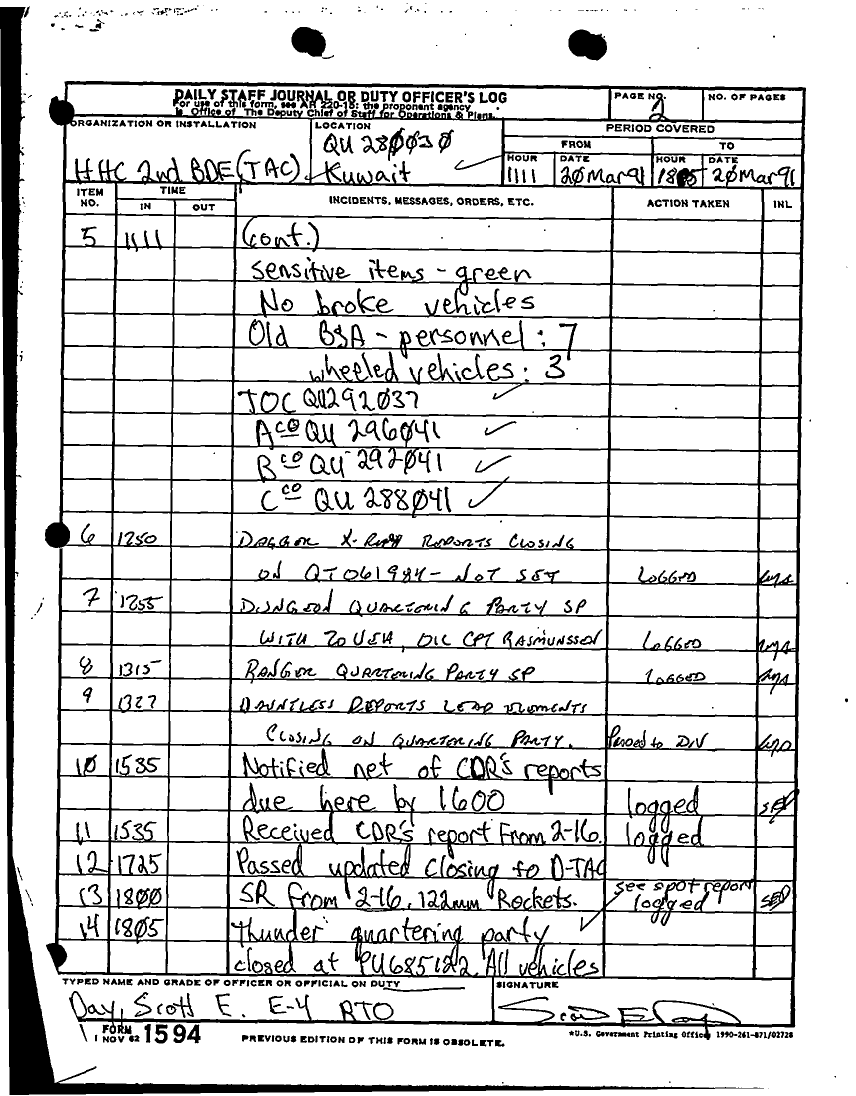 DAILY STAFF JOURNAL OR DUTY OFFICER'S LOG
For use of this form, see AR 220-15; the proponent agency
is Office of The Deputy Chief of Staff for Operations & Plans.
PAGE NO.
2
NO. OF PAGES
ORGANIZATION OR INSTALLATION
HHC 2nd BDE (TAC)
LOCATION
QU 280030
Kuwait
PERIOD COVERED
FROM
TO
HOUR DATE HOUR DATE
1111 20Mar91 1805 20Mar91
ITEM NO.
TIME
IN OUT
INCIDENTS, MESSAGES, ORDERS, ETC.
ACTION TAKEN
INL
5 1111 (cont.)
sensitive items - green
No broke vehicles
Old BSA - personnel: 7
wheeled vehicles: 3
TOC QU292037
A co QU 296041
B co QU 292041
C co QU 288041
6 1250 DAGGER X-RAY REPORTS CLOSING
ON QT061984 - NOT SET LOGGED
7 1255 DUNGEON QUARTERING PARTY SP
WITH 20 VEH, OIC CPT RASMUNSSEN LOGGED
8 1315 RANGER QUARTERING PARTY SP LOGGED
9 1327 DAUNTLESS REPORTS LEAD ELEMENTS
CLOSING ON QUARTERING PARTY. Passed to DIV
10 1535 Notified net of CDR'S reports
due here by 1600 logged
11 1535 Received CDR'S report From 2-16. logged
12 1725 Passed updated closing to D-TAC
13 1800 SR from 2-16, 122mm Rockets. see spot report
logged SED
14 1805 Thunder quartering party
closed at PU685122. All vehicles
TYPED NAME AND GRADE OF OFFICER OR OFFICIAL ON DUTY
Day, Scott E. E-4 RTO
SIGNATURE
Scott E Day
FORM
1 NOV 62 1594
PREVIOUS EDITION OF THIS FORM IS OBSOLETE.
*U.S. Government Printing Office: 1990-261-871/02728